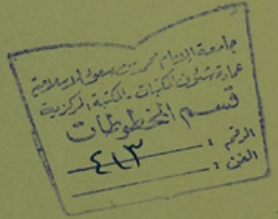 جامعة الإمام محمد بن سعود الإسلامية
عمادة شئون المكتبات - المكتبة المركزية
قسم المخطوطات
الرقم : ٤١٣
الفن :